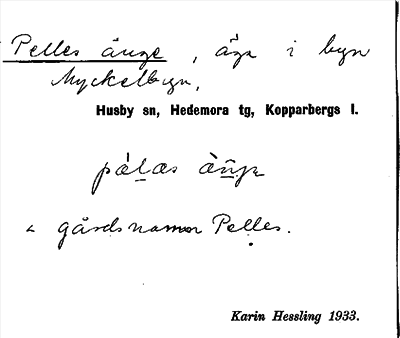 Pelles änge, äga i byn
Myckelbyn,
Husby sn, Hedemora tg, Kopparbergs l.
pèlas
< gårdsnamn Pelles.
Karin Hessling 1933.